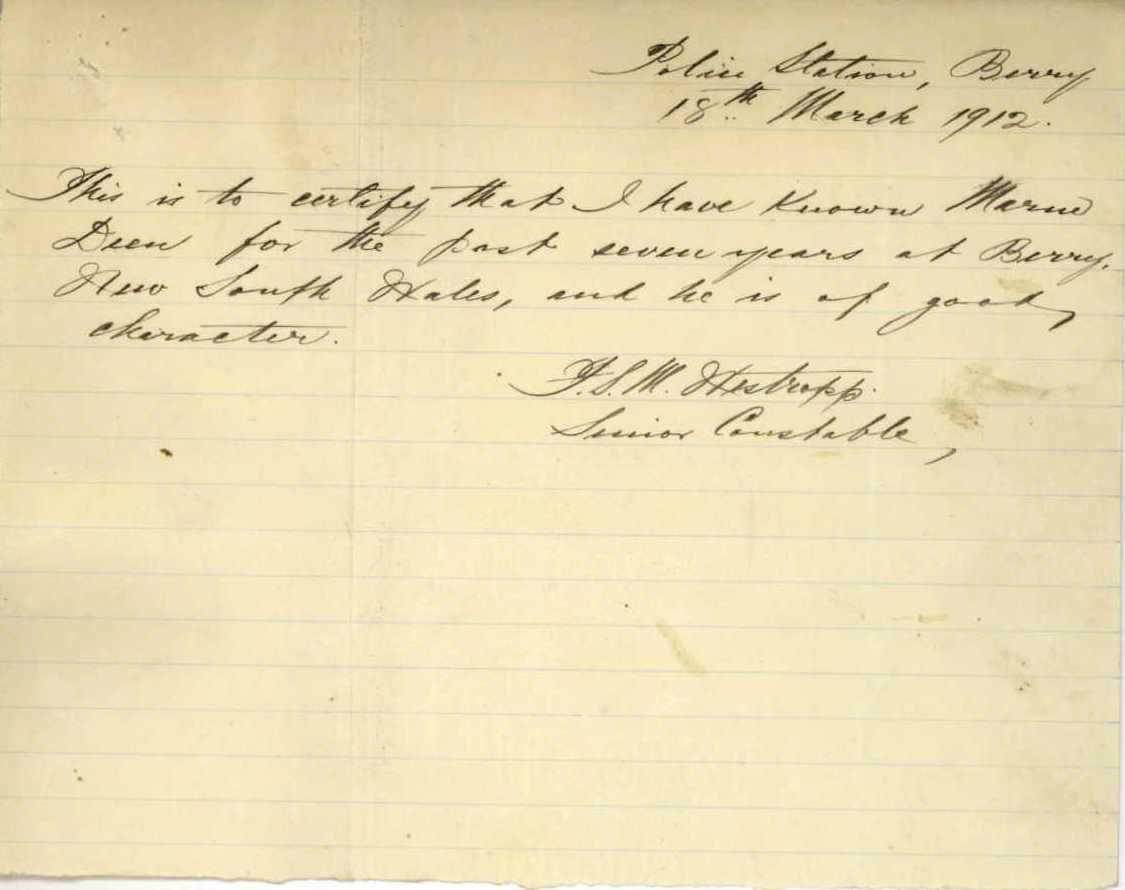 Police Station, Berry
18th March 1912.
This is to certify that I have known Marne
Deen for the past seven years at Berry,
New South Wales, and he is of good
character.
F.S.M. Westropp.
Senior Constable,